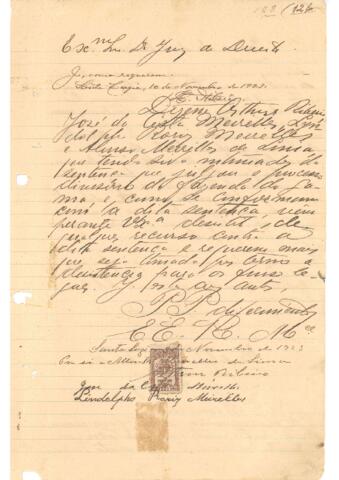 Exmo Snr Dr Juiz de Direito
Santa Luzia, 10 de Novembro de 1923.
Dizem Arthur Ribeiro
José da Costa Meirelles, Lin
dolpho Roriz Meirelles
e Meirelles de Lima
que tendo sido intimados da
sentença que julgou o processo
divisorio da fazenda do Ga
ma, e como se conformam
com a dita sentença, vem
perante V. Exa. desistir de
qualquer recurso contra a
dita sentença e requerem mais
que seja tomada por termo a
desistencia para os fins le
gaes. J nos autos,
P. P. deferimento
E. E. R. Mce
Santa Luzia, de Novembro de 1923
Meirelles de Lima
Ribeiro
José da Costa Meirelles
Lindolpho Roriz Meirelles